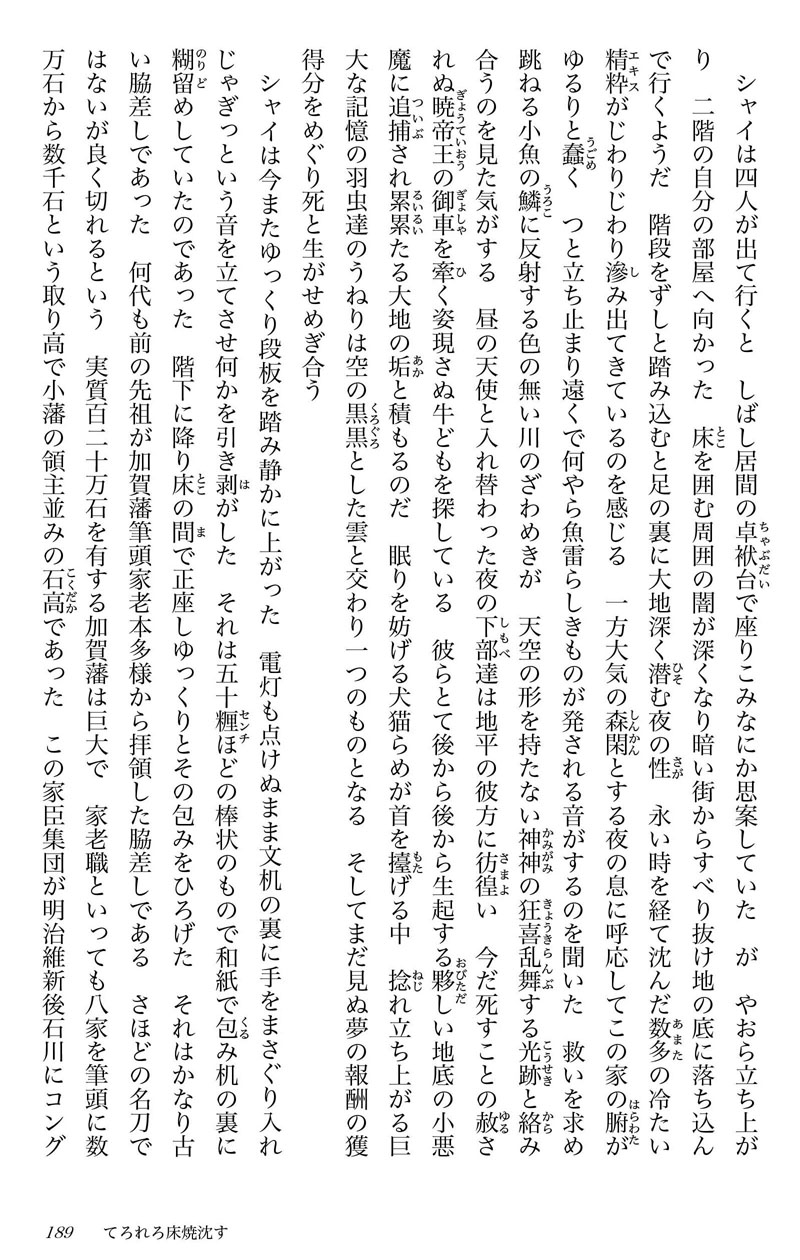 シャイは四人が出て行くと　しばし居間の卓袱台で座りこみなにか思案していた　が　やおら立ち上が
り　二階の自分の部屋へ向かった　床を囲む周囲の闇が深くなり暗い街からすべり抜け地の底に落ち込ん
で行くようだ　階段をずしと踏み込むと足の裏に大地深く潜む夜の性　永い時を経て沈んだ数多の冷たい
精粋がじわりじわり滲み出てきているのを感じる　一方大気の森閑とする夜の息に呼応してこの家の腑が
ゆるりと蠢く　つと立ち止まり遠くで何やら魚雷らしきものが発される音がするのを聞いた　救いを求め
跳ねる小魚の鱗に反射する色の無い川のざわめきが　天空の形を持たない神神の狂喜乱舞する光跡と絡み
合うのを見た気がする　昼の天使と入れ替わった夜の下部達は地平の彼方に彷徨い　今だ死すことの赦さ
れぬ暁帝王の御車を牽く姿現さぬ牛どもを探している　彼らとて後から後から生起する夥しい地底の小悪
魔に追捕され累累たる大地の垢と積もるのだ　眠りを妨げる犬猫らめが首を擡げる中　捻れ立ち上がる巨
大な記憶の羽虫達のうねりは空の黒黒とした雲と交わり一つのものとなる　そしてまだ見ぬ夢の報酬の獲
得分をめぐり死と生がせめぎ合う
シャイは今またゆっくり段板を踏み静かに上がった　電灯も点けぬまま文机の裏に手をまさぐり入れ
じゃぎっという音を立てさせ何かを引き剥がした　それは五十糎ほどの棒状のもので和紙で包み机の裏に
糊留めしていたのであった　階下に降り床の間で正座しゆっくりとその包みをひろげた　それはかなり古
い脇差しであった　何代も前の先祖が加賀藩筆頭家老本多様から拝領した脇差しである　さほどの名刀で
はないが良く切れるという　実質百二十万石を有する加賀藩は巨大で　家老職といっても八家を筆頭に数
万石から数千石という取り高で小藩の領主並みの石高であった　この家臣集団が明治維新後石川にコング
189　てろれろ床焼沈す